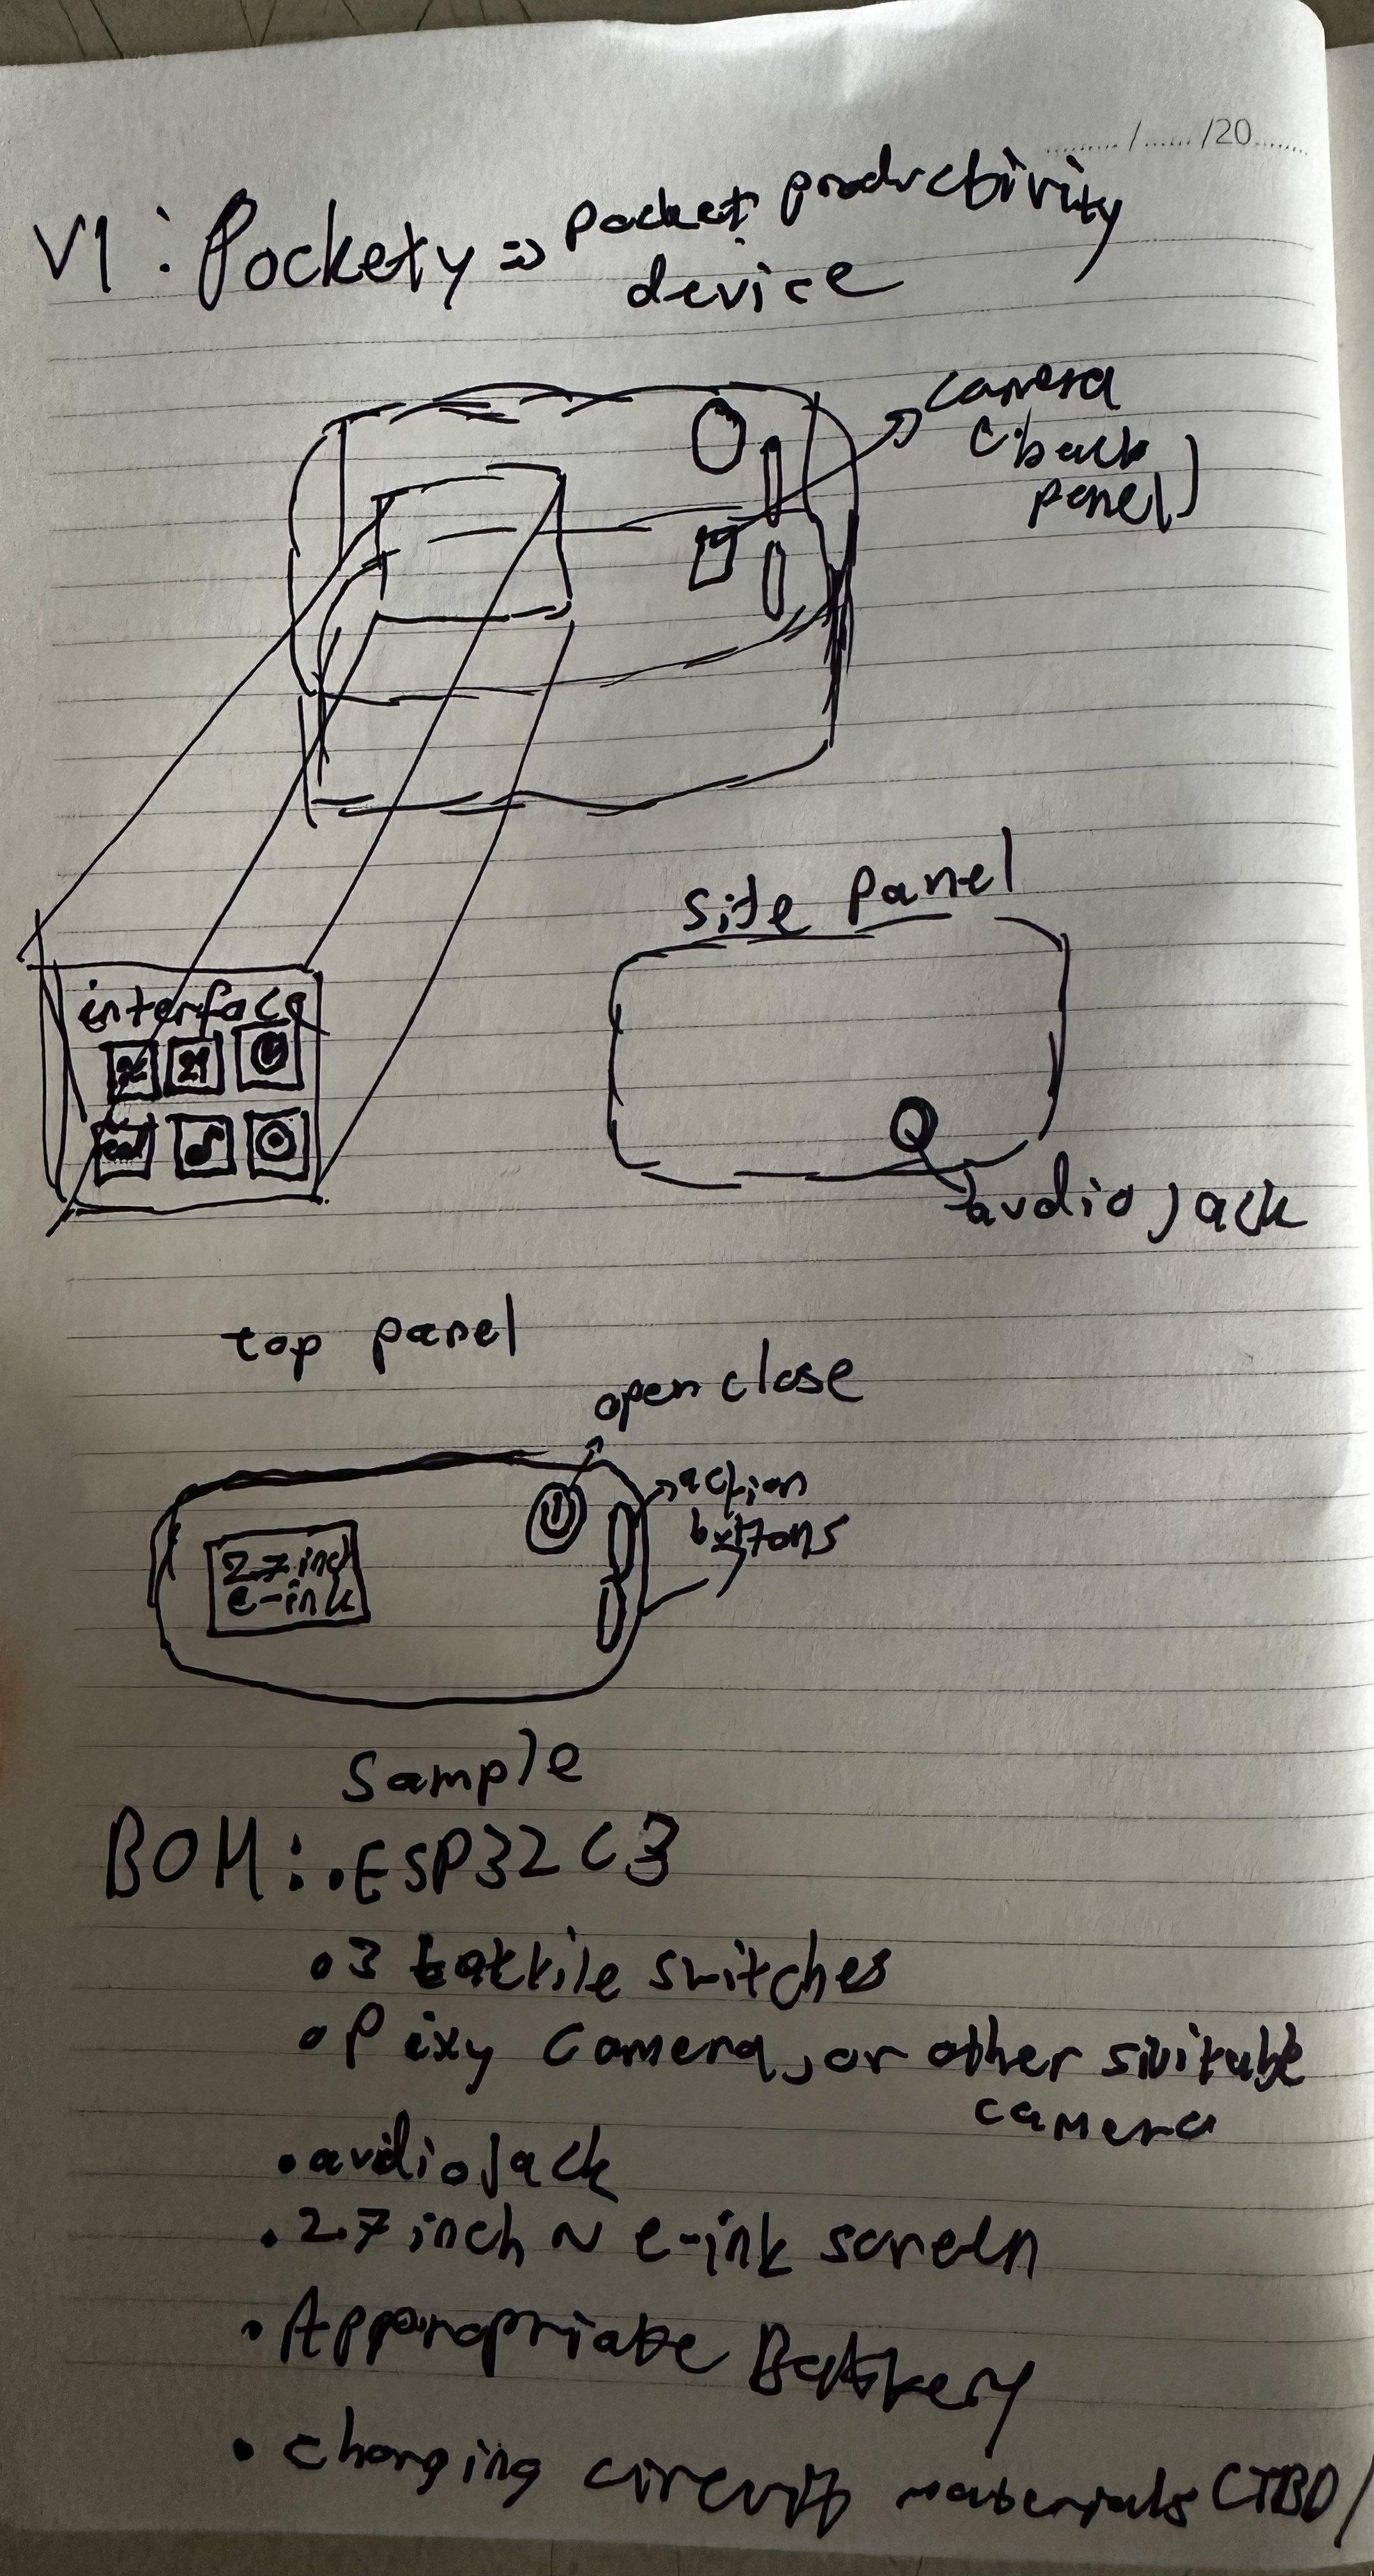 ....... / ...... /20.......
V1 : Pockety => pocket productivity
device
camera
(back
panel)
interface
Side Panel
audio jack
top panel
open close
action
buttons
2.7 inch
e-ink
Sample
BOM : . ESP32 C3
• 3 tactile switches
• Pixy Camera, or other suitable
camera
• audio jack
• 2.7 inch ~ e-ink screen
• Appropriate Battery
• charging circuit materials (TBD)